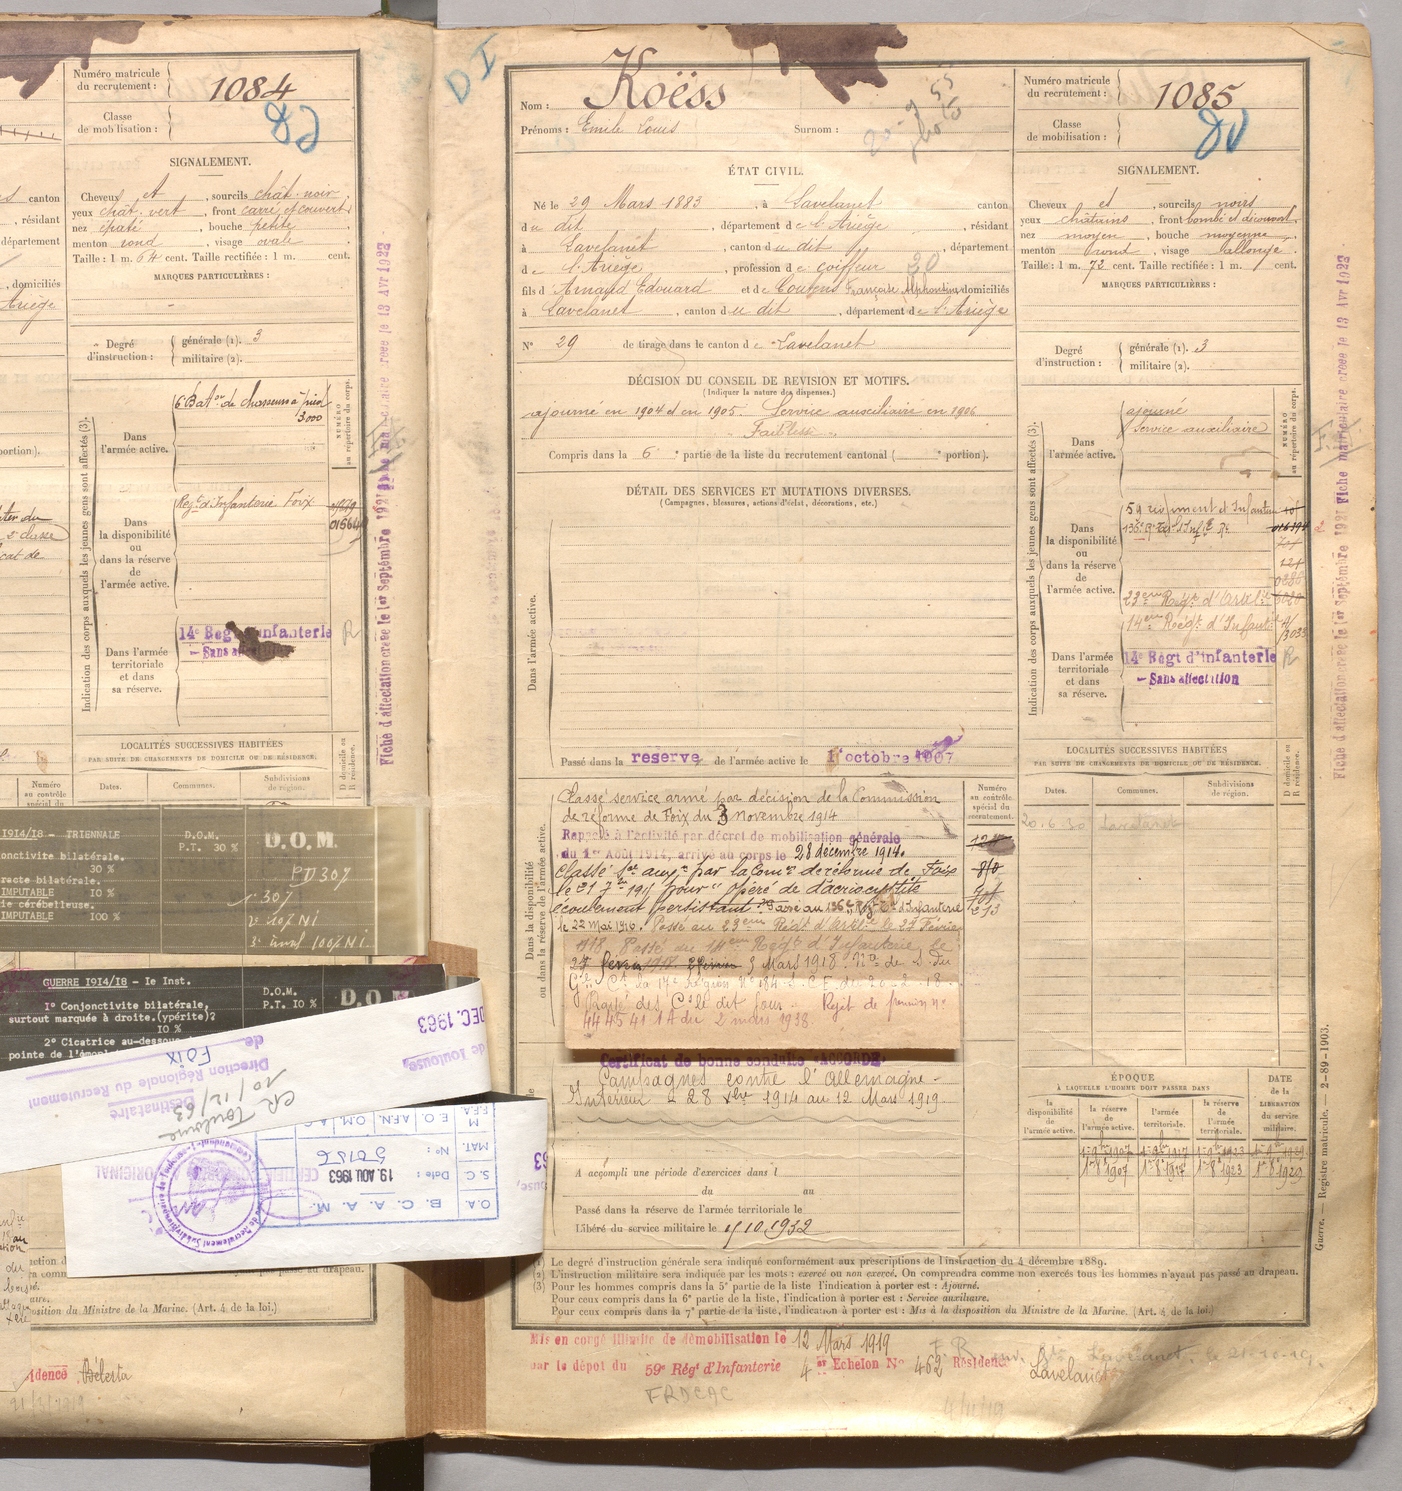 Numéro matricule
du recrutement :
1084
Classe
de mobilisation :
SIGNALEMENT.
canton
Cheveux et , sourcils chât. noir
, résidant
yeux chât. vert , front carré et couvert
nez épaté , bouche petite
département
menton rond , visage ovale
Taille : 1 m. 64 cent. Taille rectifiée : 1 m. cent.
MARQUES PARTICULIÈRES :
, domiciliés
Ariège
Degré
d'instruction :
générale (1). 3
militaire (2).
Indication des corps auxquels les jeunes gens sont affectés (3).
Dans
l'armée active.
6 Baton de chasseurs à pied
3.000
NUMÉRO
au répertoire du corps.
Dans
la disponibilité
ou
dans la réserve
de
l'armée active.
Regt d'Infanterie Foix
Dans l'armée
territoriale
et dans
sa réserve.
14e Regt d'infanterie
R
Fiche d'affectation créée le 1er Septembre 1921
Fiche matriculaire créée le 13 Avr 1922
LOCALITÉS SUCCESSIVES HABITÉES
PAR SUITE DE CHANGEMENTS DE DOMICILE OU DE RÉSIDENCE.
D domicile ou
R résidence.
Numéro
au contrôle
spécial du
Dates.
Communes.
Subdivisions
de région.
1914/18 - TRIENNALE
onctivite bilatérale.
30 %
racte bilatérale.
IMPUTABLE 10 %
ie cérébelleuse.
IMPUTABLE 100 %
D.O.M.
P.T. 30 %
D.O.M.
GUERRE 1914/18 - Ie Inst.
1° Conjonctivite bilatérale,
surtout marquée à droite.(ypérite)?
10 %
2° Cicatrice au-dessous
D.O.M.
P.T. 10 %
D.O.M.
DEC. 1963
de Toulouse,
de
FOIX
Direction Régionale du Recrutement
Destinataire
CR Toulouse
10/12/63
O.A. B.C.A.A.M.
S.C. Date : 19. AOU 1963
MAT. No : 50156
E.O. AEN. O.M.
position du Ministre de la Marine. (Art. 4 de la loi.)
Résidence Bélesta
DI
Nom : Koëss
Prénoms : Emile Louis
Surnom :
ÉTAT CIVIL.
Né le 29 Mars 1883 , à Lavelanet canton
du dit , département de l'Ariège , résidant
à Lavelanet , canton du dit , département
de l'Ariège , profession de coiffeur
fils d'Arnaud Edouard et de Coutens Françoise Alphontine domiciliés
à Lavelanet , canton du dit , département de l'Ariège
N° 29 de tirage dans le canton de Lavelanet
DÉCISION DU CONSEIL DE REVISION ET MOTIFS.
(Indiquer la nature des dispenses.)
ajourné en 1904 et en 1905. Service auxiliaire en 1906
Faiblesse
Compris dans la 6e partie de la liste du recrutement cantonal ( e portion).
DÉTAIL DES SERVICES ET MUTATIONS DIVERSES.
(Campagnes, blessures, actions d'éclat, décorations, etc.)
Dans l'armée active.
Passé dans la reserve de l'armée active le 1er octobre 1907
Dans la disponibilité
ou dans la réserve de l'armée active.
Classé service armé par décision de la Commission
de réforme de Foix du 3 novembre 1914
Rappelé à l'activité par décret de mobilisation générale
du 1er Août 1914, arrivé au corps le 28 décembre 1914.
Classé ser auxre par la Comon de réforme de Foix
le 21 7bre 1915 pour "Opéré de dacriocystite
écoulement persistant". Passé au 136e Régt Tal d'Infanterie
le 22 Mai 1916. Passé au 23eme Régt d'Artlie le 27 Février
1918. Passé au 14eme Régt d'Infanterie le
27 février 1918 3 Mars 1918. Non de S. du
Gal Ct la 17e Région No 184 S.C.E. du 20-2-18.
Rejet de pension no
44 45 41 1A du 2 mars 1938
Certificat de bonne conduite "ACCORDÉ"
Campagnes contre l'Allemagne
Intérieur du 28 Xbre 1914 au 12 Mars 1919
A accompli une période d'exercices dans l
du au
Passé dans la réserve de l'armée territoriale le
Libéré du service militaire le 15/10/1932
Numéro
au contrôle
spécial du
recrutement.
Numéro matricule
du recrutement :
1085
Classe
de mobilisation :
SIGNALEMENT.
Cheveux et , sourcils noirs
yeux châtains , front bombé et découvert
nez moyen , bouche moyenne
menton rond , visage allongé
Taille : 1 m. 72 cent. Taille rectifiée : 1 m. cent.
MARQUES PARTICULIÈRES :
Degré
d'instruction :
générale (1). 3
militaire (2).
Indication des corps auxquels les jeunes gens sont affectés (3).
Dans
l'armée active.
ajourné
Service auxiliaire
NUMÉRO
au répertoire du corps.
Dans
la disponibilité
ou
dans la réserve
de
l'armée active.
59 régiment d'Infanterie
136e Rt Tal d'Infie
23eme Régt d'Artlie
14eme Régt d'Infant
Dans l'armée
territoriale
et dans
sa réserve.
14e Régt d'infanterie
- Sans affectation
R
Fiche d'affectation créée le 1er Septembre 1921
Fiche matriculaire créée le 13 Avr 1922
LOCALITÉS SUCCESSIVES HABITÉES
PAR SUITE DE CHANGEMENTS DE DOMICILE OU DE RÉSIDENCE.
D domicile ou
R résidence.
Dates.
Communes.
Subdivisions
de région.
20.6.30 Lavelanet
ÉPOQUE
À LAQUELLE L'HOMME DOIT PASSER DANS
DATE
de la
LIBÉRATION
du service
militaire.
la
disponibilité
de
l'armée active.
la réserve
de
l'armée active.
l'armée
territoriale.
la réserve
de
l'armée
territoriale.
1er 8bre 1907 1er 8bre 1917 1er 8bre 1923 1er 8bre 1929
Guerre. — Registre matricule. — 2-89-1903.
(1) Le degré d'instruction générale sera indiqué conformément aux prescriptions de l'instruction du 4 décembre 1889.
(2) L'instruction militaire sera indiquée par les mots : exercé ou non exercé. On comprendra comme non exercés tous les hommes n'ayant pas passé au drapeau.
(3) Pour les hommes compris dans la 5e partie de la liste l'indication à porter est : Ajourné.
Pour ceux compris dans la 6e partie de la liste, l'indication à porter est : Service auxiliaire.
Pour ceux compris dans la 7e partie de la liste, l'indication à porter est : Mis à la disposition du Ministre de la Marine. (Art. 4 de la loi.)
Mis en congé illimité de démobilisation le 12 Mars 1919
par le dépôt du 59e Rég' d'Infanterie 4 er Echelon No 462 Résidence Lavelanet